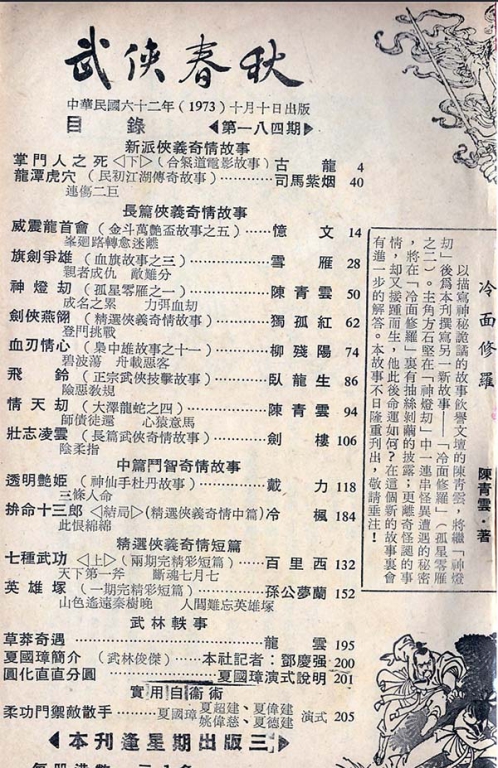 武俠春秋
中華民國六十二年（1973）十月十日出版
目錄 ◀第一八四期▶
新派俠義奇情故事
掌門人之死〈下〉（合氣道電影故事）古龍 4
龍潭虎穴（民初江湖傳奇故事）…………司馬紫烟 40
連傷二巨
長篇俠義奇情故事
威震龍首會（金斗萬艷盃故事之五）……憶文 14
峯廻路轉愈迷離
旗劍爭雄（血旗故事之三）………………雪雁 28
親者成仇 敵難分
神燈劫（孤星零雁之一）………………陳青雲 50
成名之累 力弭血劫
劍俠燕翎（精選俠義奇情故事）…………獨孤紅 62
登門挑戰
血刃情心（梟中雄故事之十一）…………柳殘陽 74
碧波蕩 舟載惡客
飛鈴（正宗武俠技擊故事）………………臥龍生 86
險惡教規
情天劫（大澤龍蛇之四）………………陳青雲 94
師債徒還 心猿意馬
壯志凌雲（長篇武俠奇情故事）…………劍樓 106
陰柔指
中篇鬥智奇情故事
透明艶姬（神仙手杜丹故事）……………戴力 118
三條人命
拚命十三郎〈結局〉（精選俠義奇情中篇）冷楓 184
此恨綿綿
精選俠義奇情短篇
七種武功〈上〉（兩期完精彩短篇）……百里西 132
天下第一斧 斷魂七月七
英雄塚（一期完精彩短篇）……………孫公夢蘭 152
山色遙遠秦樹晚 人間難忘英雄塚
武林軼事
草莽奇遇……………………………………龍雲 195
夏國璋簡介（武林俊傑）………本社記者：鄧慶强 200
圓化直直分圓………………………夏國璋演式說明 201
實用自衞術
柔功門禦敵散手………夏國璋 夏超建、夏偉建 姚偉慈、夏德建 演式 205
◀本刊逢星期三出版▶
冷面修羅
陳青雲・著
以描寫神秘詭譎的故事飲譽文壇的陳青雲，將繼「神燈
劫」後爲本刊撰寫另一新故事——「冷面修羅」（孤星零雁
之二）。主角方石堅在「神燈劫」中一連串怪異遭遇的秘密
，將在「冷面修羅」裏有抽絲剝繭的披露；更離奇怪譎的事
情，却又接踵而生，他此後命運如何？在這個新的故事裏會
有進一步的解答。本故事不日隆重刊出，敬請垂注！